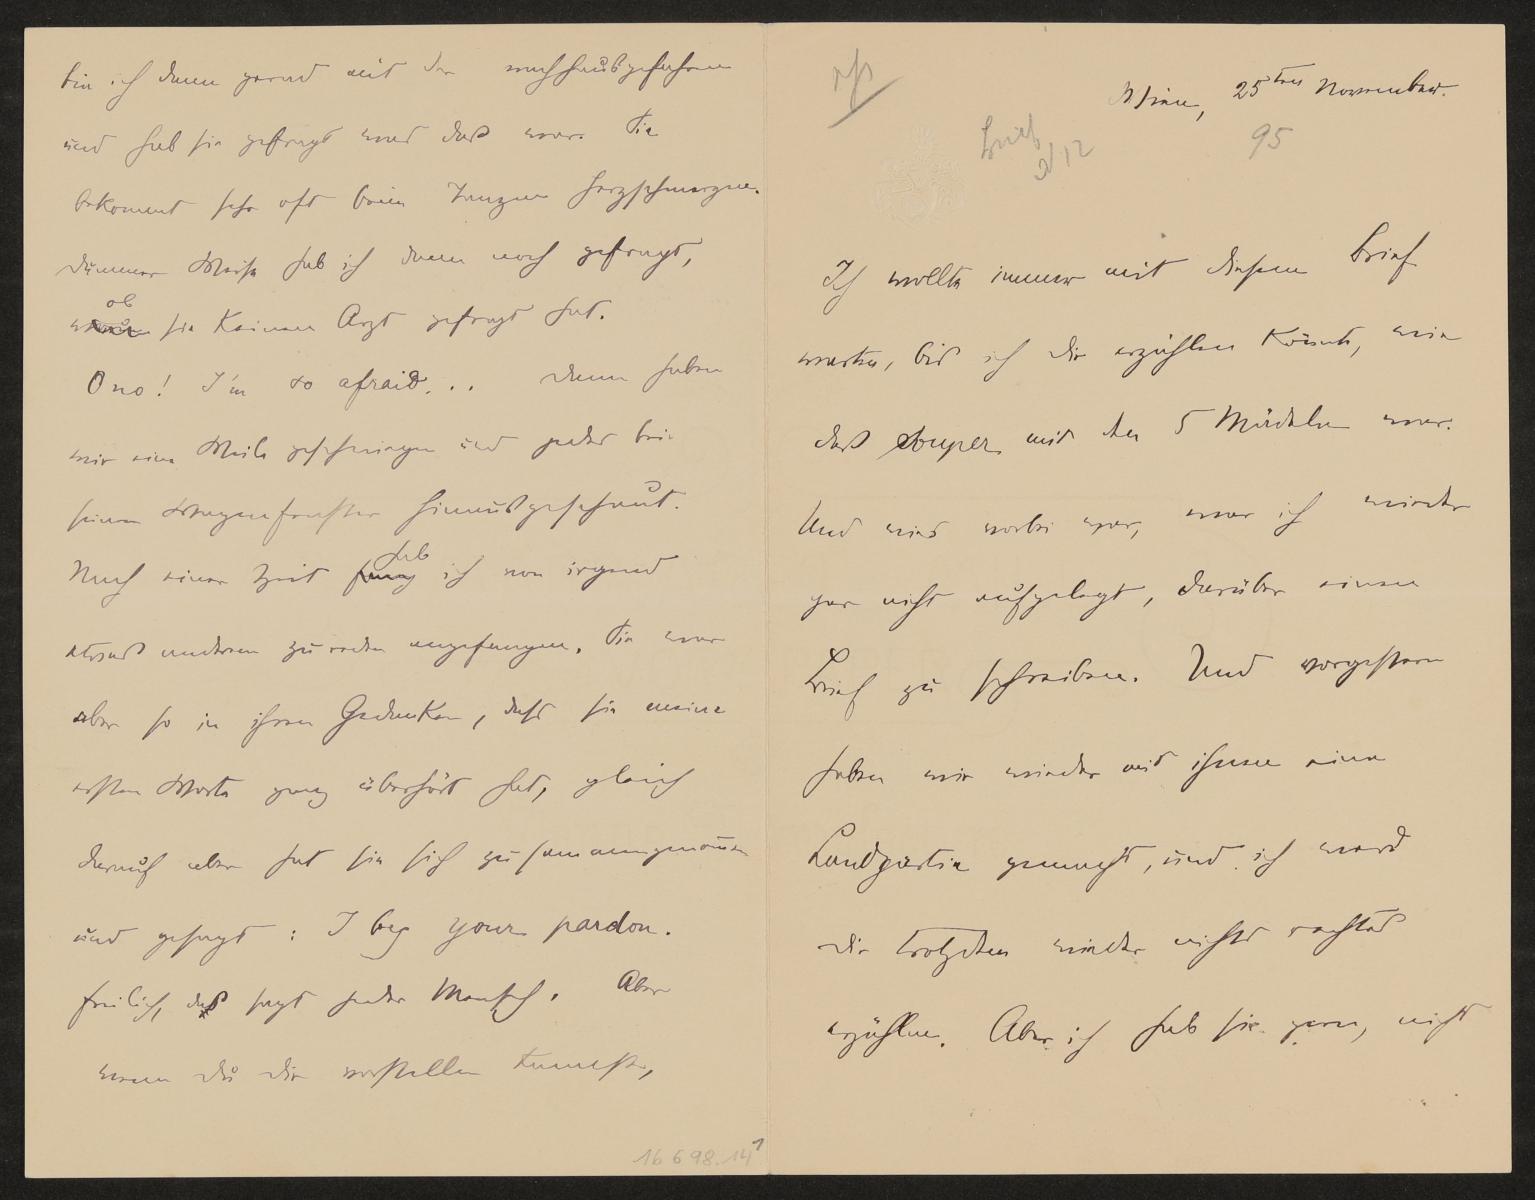 bin ich dann grad mit der nachhausgefahren
und hab sie gefragt was das war. Sie
bekommt sehr oft beim Tanzen Herzschmerzen.
Dummer Weise hab ich dann noch gefragt,
ob
sie keinen Arzt gefragt hat.
O no! I'm so afraid... Dann haben
wir eine Weile geschwiegen und jeder bei
seinem Wagenfenster hinausgeschaut.
hab
Nach einer Zeit fang ich von irgend
etwas anderem zu reden angefangen. Sie war
aber so in ihren Gedanken, dass sie meine
ersten Worte ganz überhört hat, gleich
darauf aber hat sie sich zusammengenommen
und gesagt: I beg your pardon.
freilich, das sagt jeder Mensch. Aber
wenn du dir vorstellen kannst,
16698.14
Wien, 25ten November.
95
Brief
Ich wollte immer mit diesem Brief
warten, bis ich dir erzählen könnte, wie
das souper mit den 5 Mädeln war.
Und wies vorbei war, war ich wieder
gar nicht aufgelegt, darüber einen
Brief zu schreiben. Und vorgestern
haben wir wieder mit ihnen eine
Landpartie gemacht, und ich werd
dir trotzdem wieder nichts rechtes
erzählen. Aber ich hab sie gern, nicht